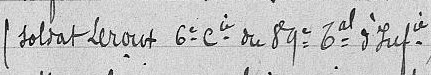 ( Soldat Lerout 6e Cie du 89e Bal d'Infie